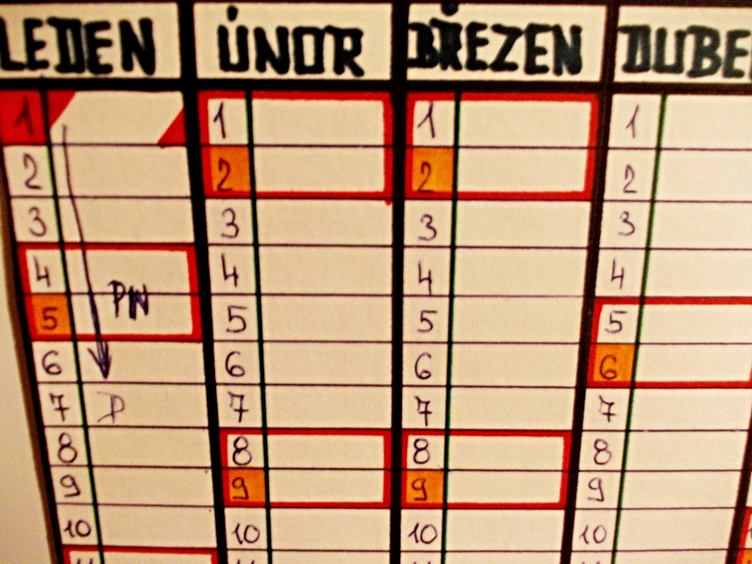 LEDEN ÚNOR BŘEZEN DUBE
1 1 1 1
2 2 2 2
3 3 3 3
4 4 4 4
5 PN 5 5 5
6 6 6 6
7 D 7 7 7
8 8 8 8
9 9 9 9
10 10 10 10